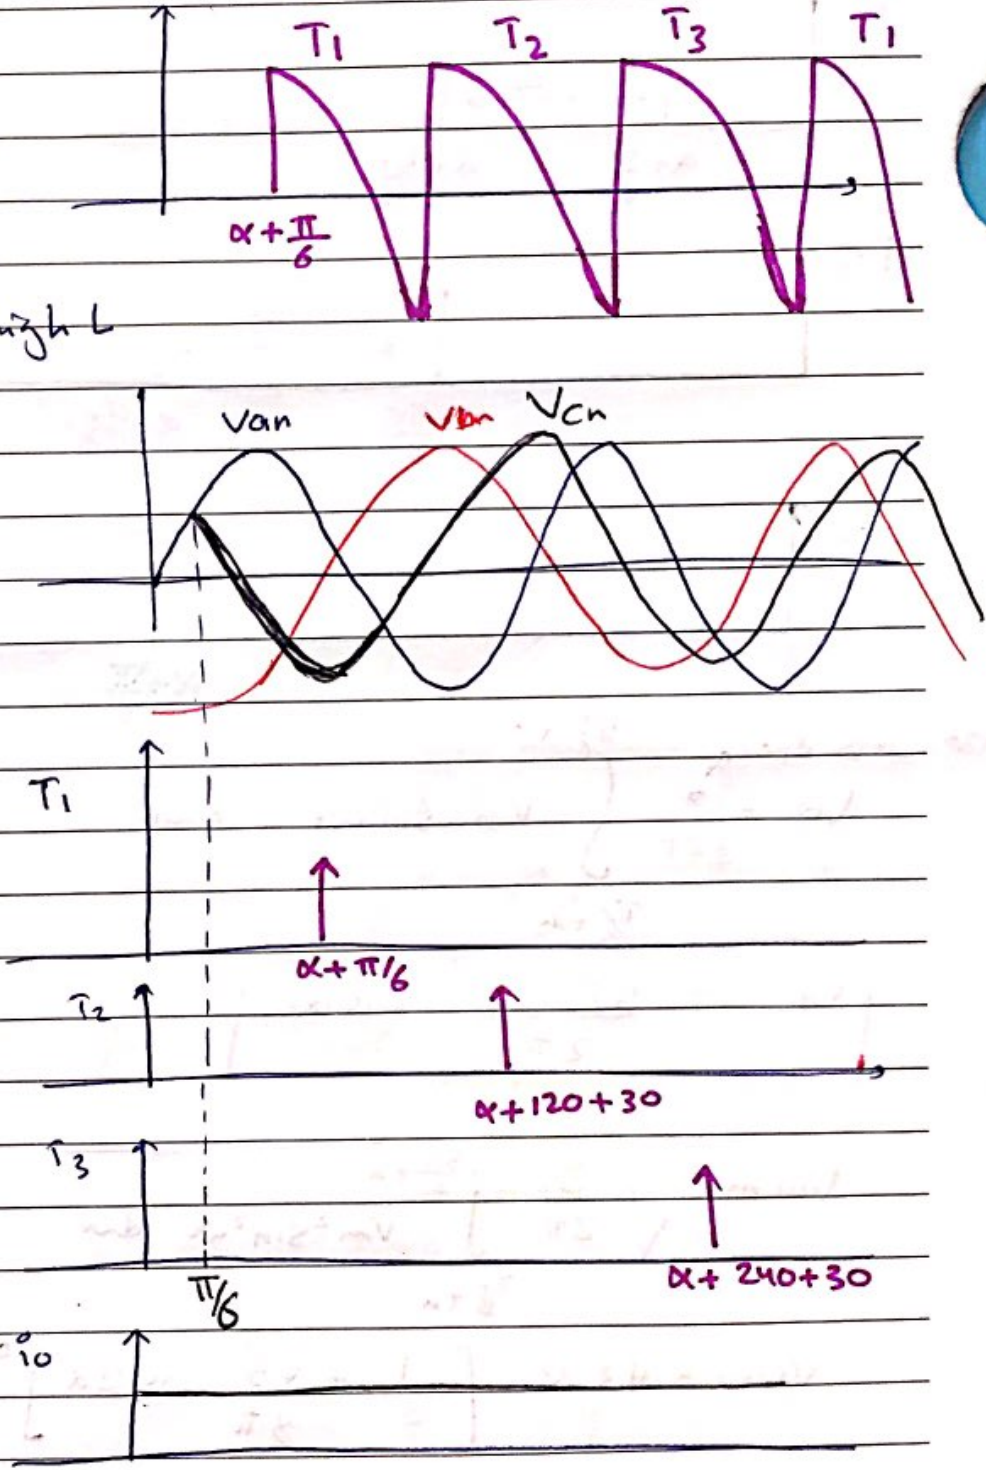 T1 T2 T3 T1
α + π/6
high L
Van Vbn Vcn
T1
α + π/6
T2
α + 120 + 30
T3
α + 240 + 30
π/6
io